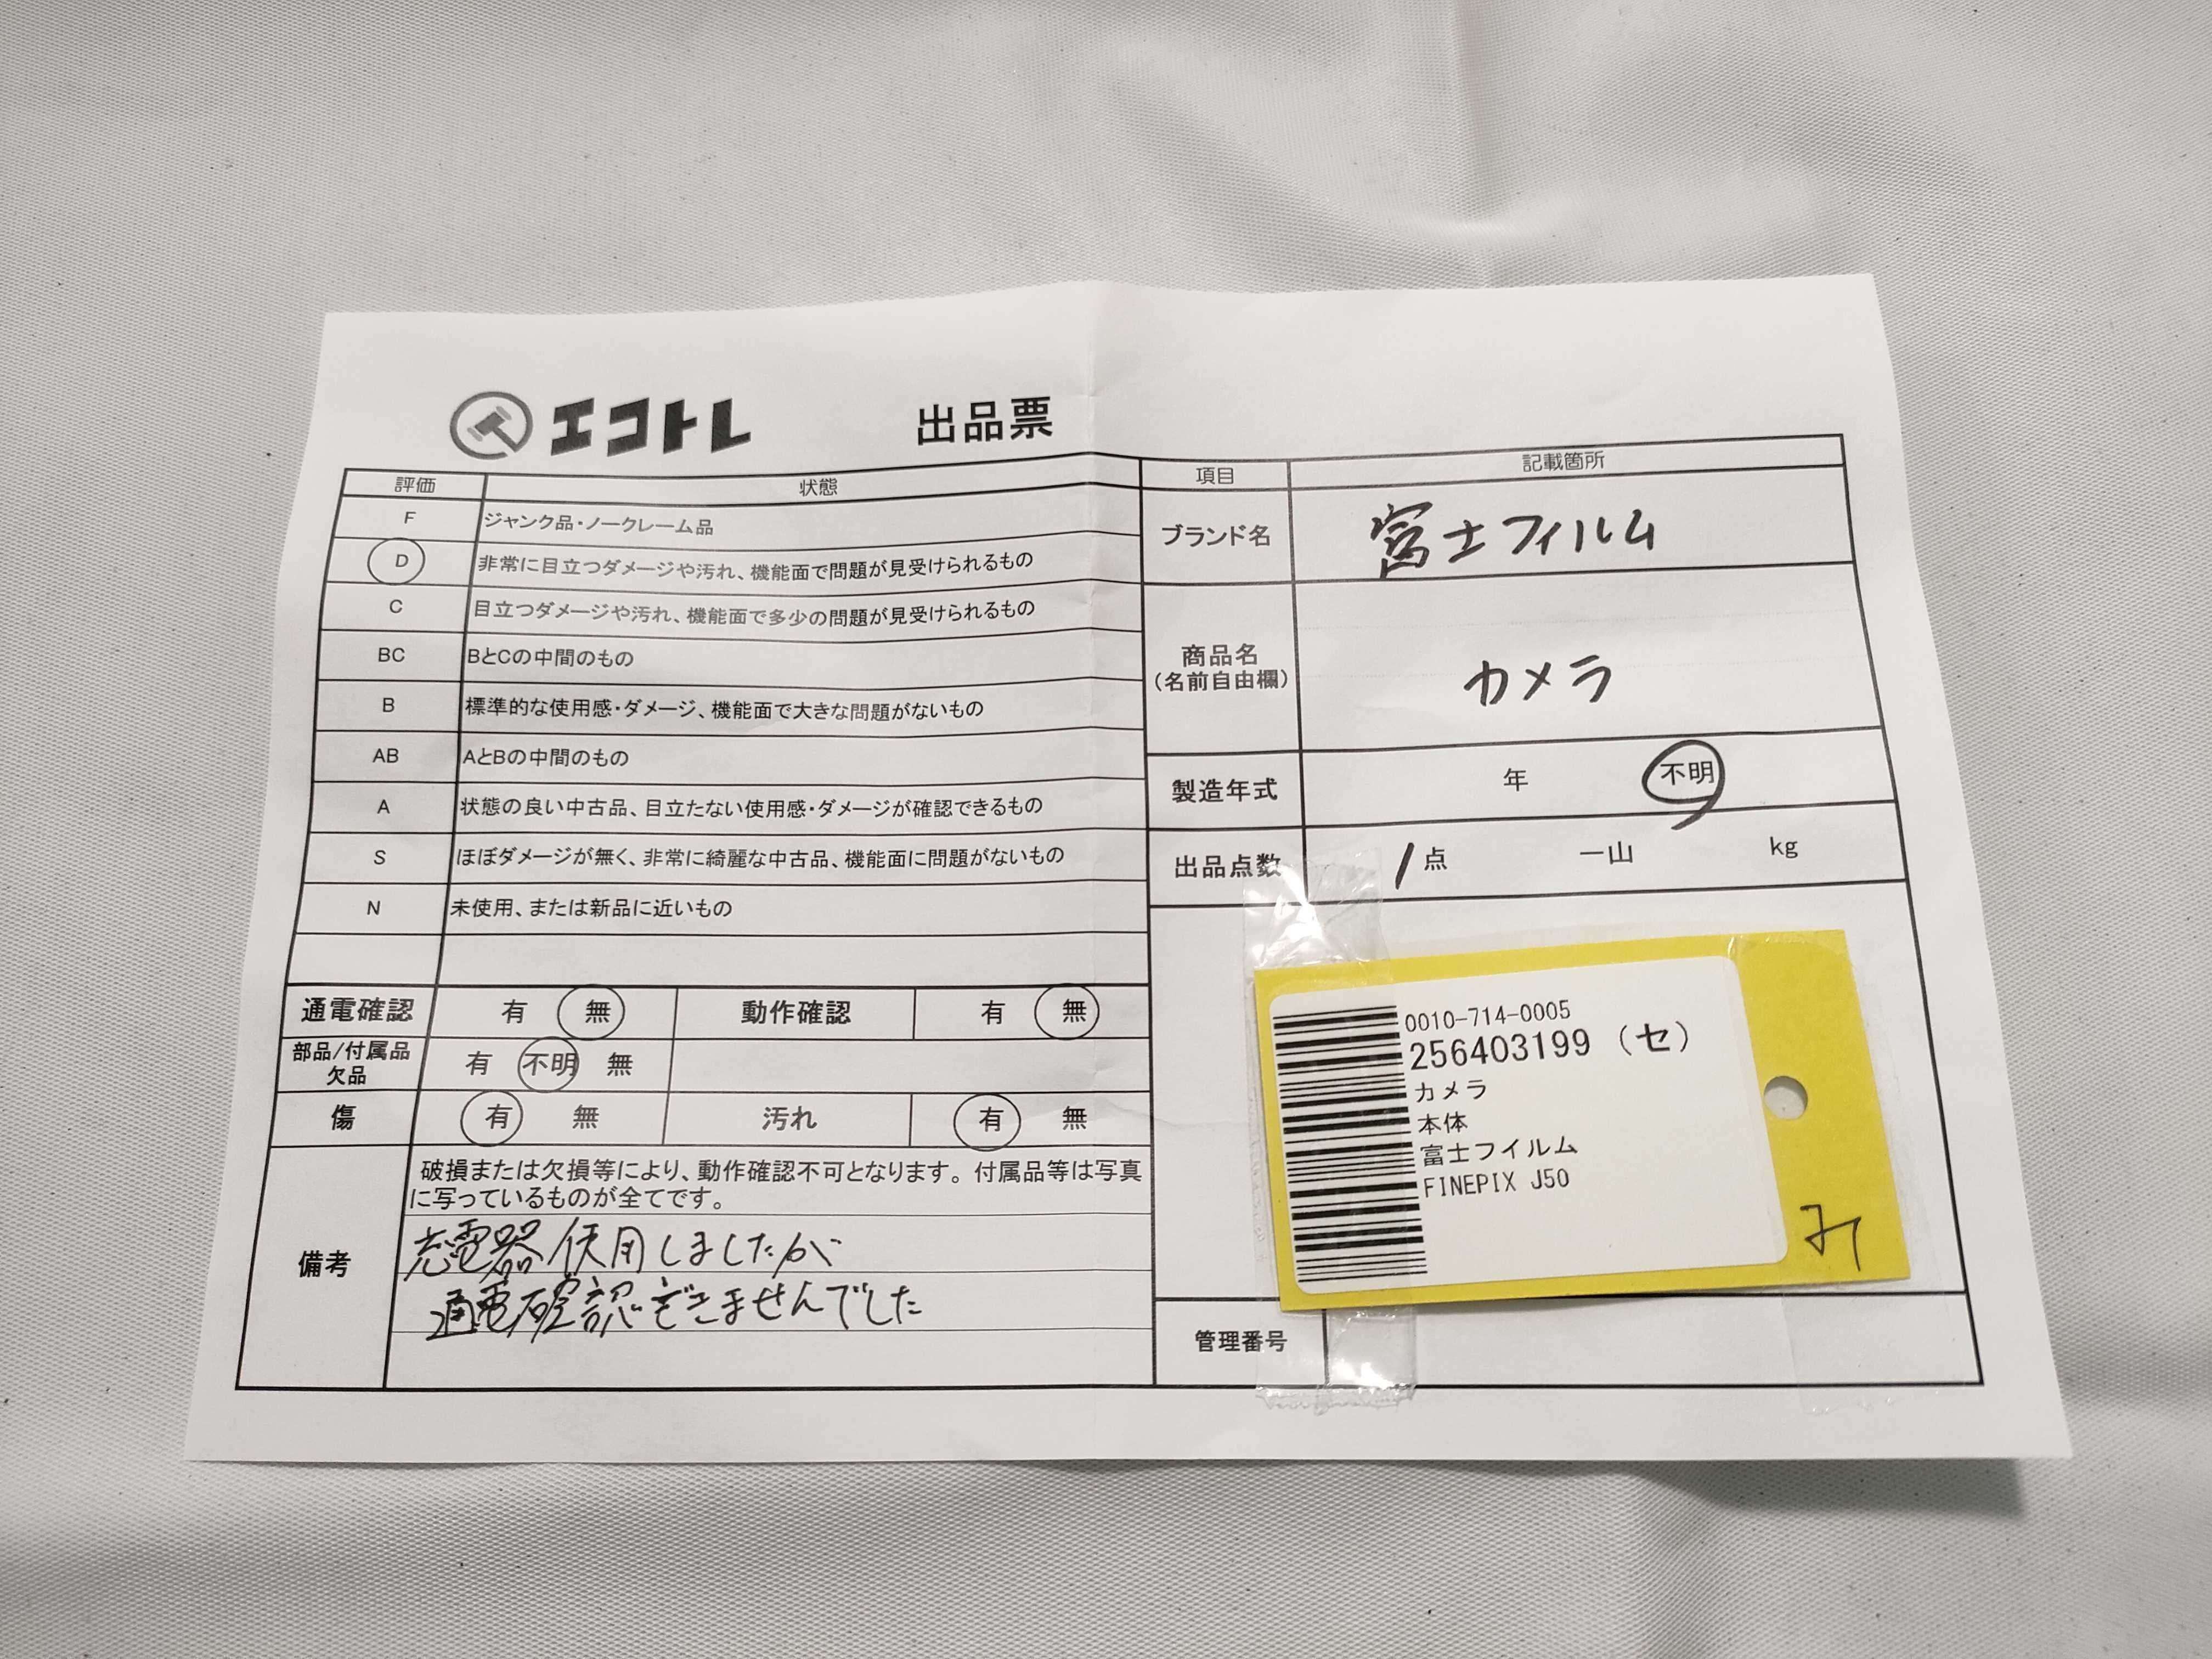 エコトレ 出品票
評価 状態
F ジャンク品・ノークレーム品
D 非常に目立つダメージや汚れ、機能面で問題が見受けられるもの
C 目立つダメージや汚れ、機能面で多少の問題が見受けられるもの
BC BとCの中間のもの
B 標準的な使用感・ダメージ、機能面で大きな問題がないもの
AB AとBの中間のもの
A 状態の良い中古品、目立たない使用感・ダメージが確認できるもの
S ほぼダメージが無く、非常に綺麗な中古品、機能面に問題がないもの
N 未使用、または新品に近いもの
通電確認 有 無 動作確認 有 無
部品/付属品
欠品 有 不明 無
傷 有 無 汚れ 有 無
備考
破損または欠損等により、動作確認不可となります。付属品等は写真
に写っているものが全てです。
充電器使用しましたが
通電確認できませんでした
項目 記載箇所
ブランド名 富士フィルム
商品名
(名前自由欄) カメラ
製造年式 年 不明
出品点数 1点 一山 kg
0010-714-0005
256403199 (セ)
カメラ
本体
富士フイルム
FINEPIX J50
管理番号